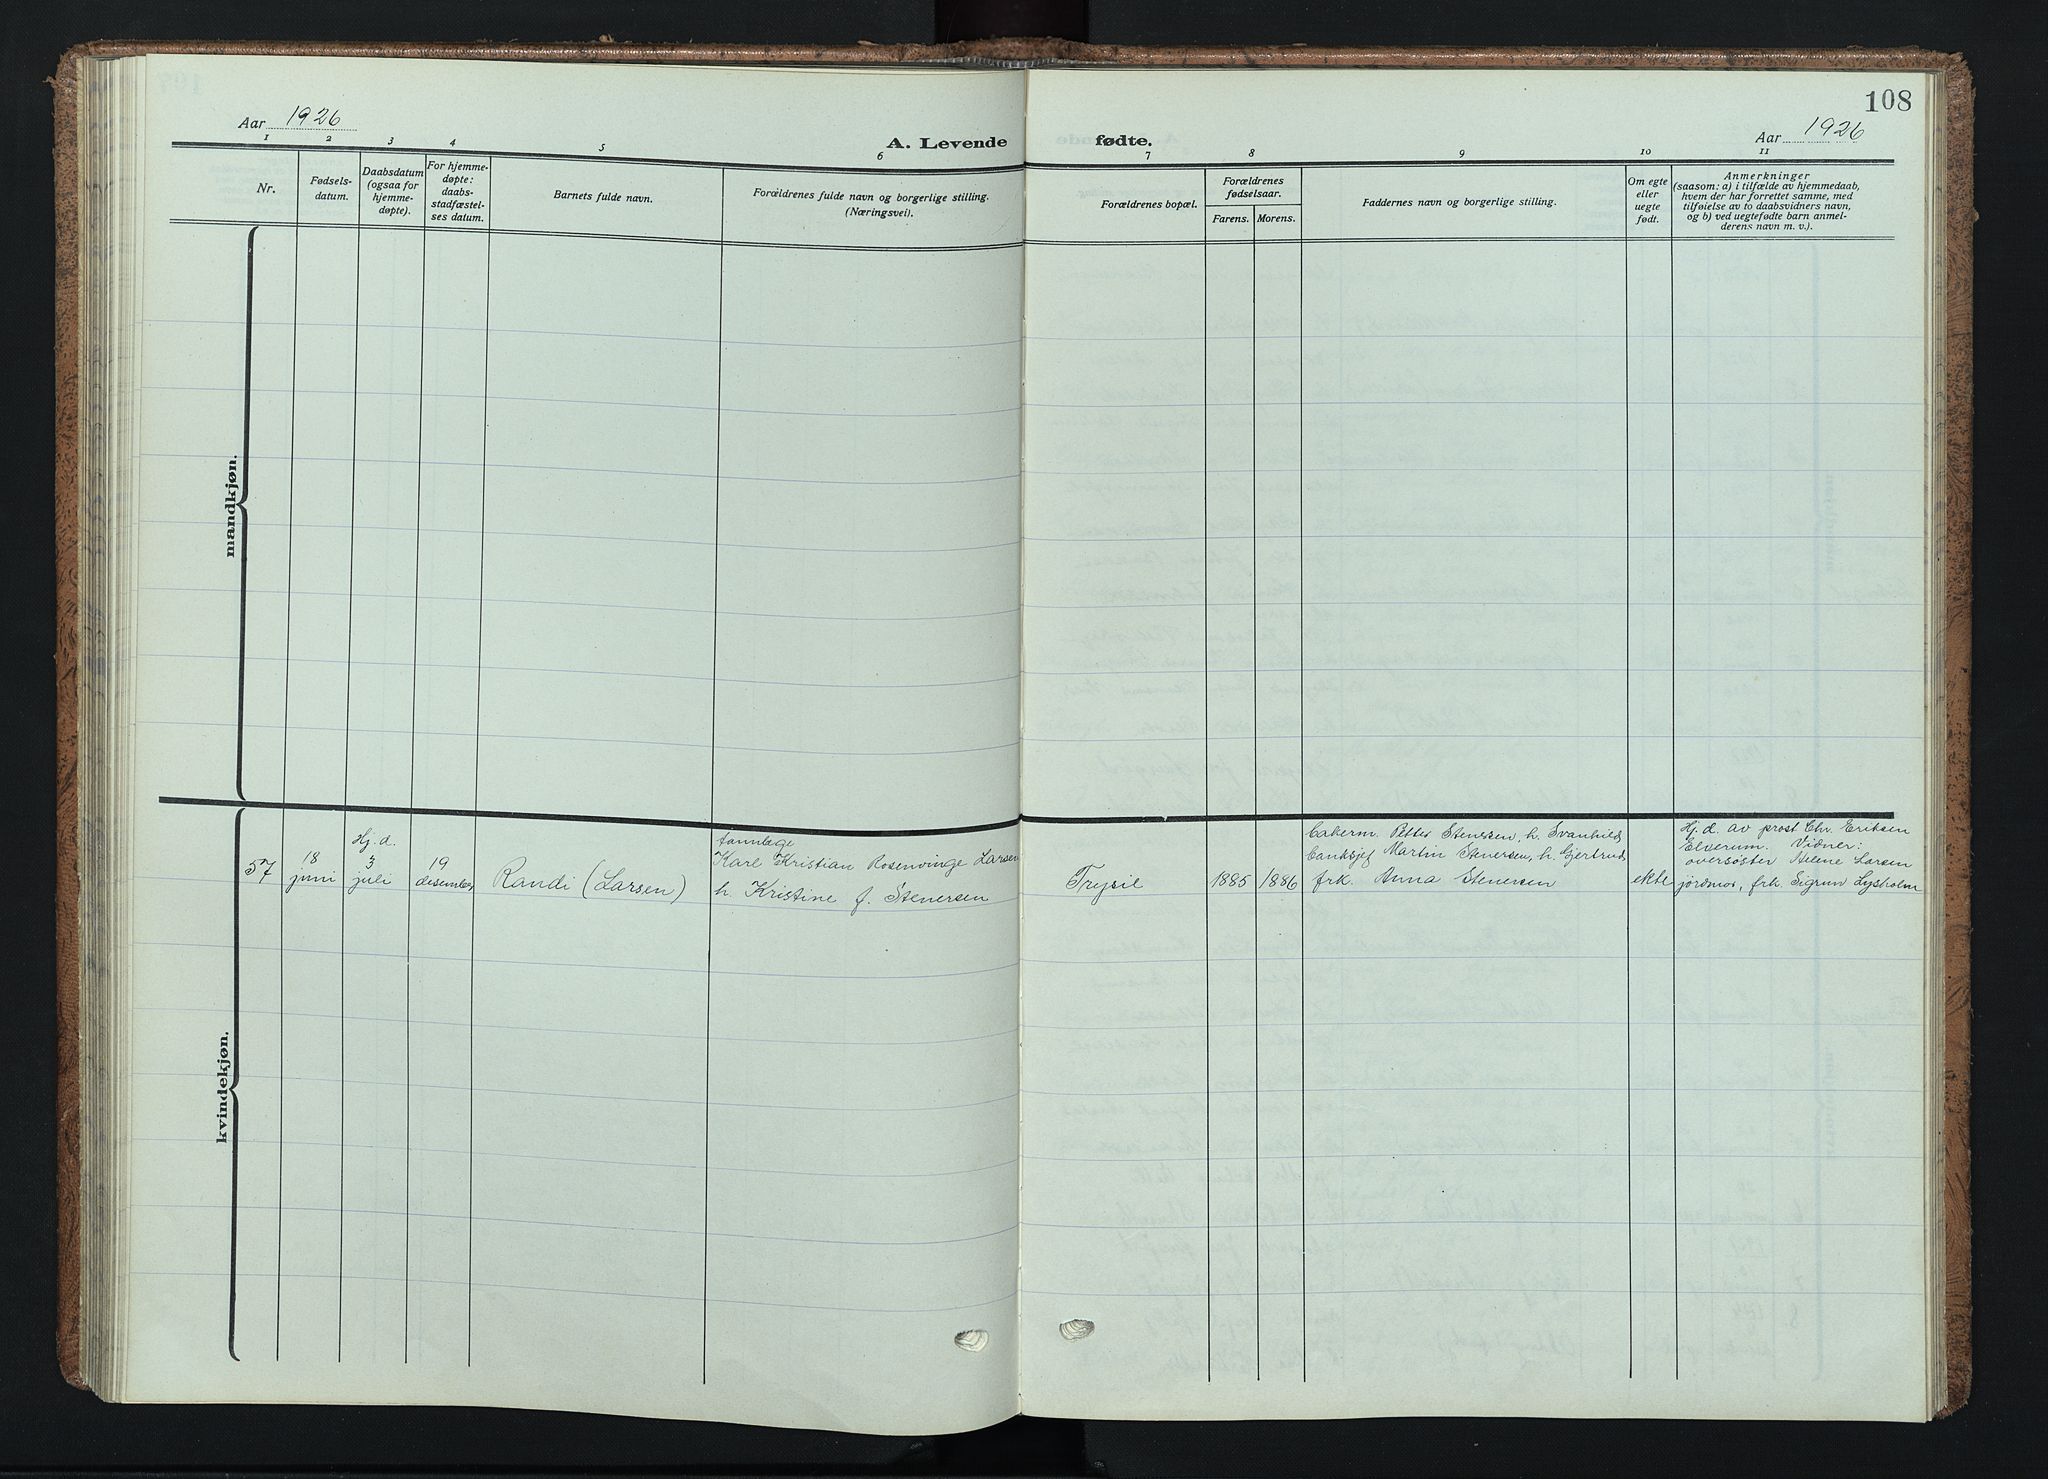 108
Aar 1926
A. Levende fødte.
Aar 1926
1 2 3 4 5 6 7 8 9 10 11
Nr.
Fødsels-
datum.
Daabsdatum
(ogsaa for
hjemme-
døpte).
For hjemme-
døpte:
daabs-
stadfæstel-
ses datum.
Barnets fulde navn.
Forældrenes fulde navn og borgerlige stilling.
(Næringsvei).
Forældrenes bopæl.
Forældrenes
fødselsaar.
Farens. Morens.
Faddernes navn og borgerlige stilling.
Om egte
eller
uegte
født.
Anmerkninger
(saasom: a) i tilfælde av hjemmedaab,
hvem der har forrettet samme, med
tilføielse av to daabsvidners navn,
og b) ved uegtefødte barn anmel-
derens navn m. v.).
mandkjøn.
kvindekjøn.
57
18
juni
Hj. d.
3
juli
19
desember
Randi (Larsen)
tannlæge
Karl Kristian Rosenvinge Larsen
h. Kristine f. Stenersen
Trysil
1885
1886
Petter Stenersen, h. Svanhild
Banksjef Martin Stenersen, h. Gjertrud
frk. Anna Stenersen
ekte
Hj. d. av prost Chr. Eriksen
Elverum. Vidner:
oversøster Helene Larsen
jordmor, frk. Sigrun Lysholm